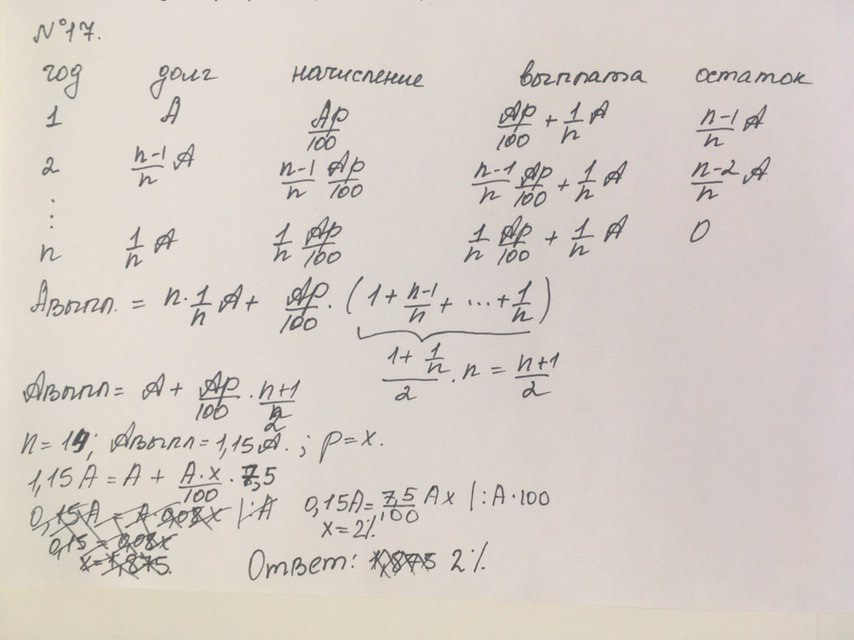 №17.
год долг начисление выплата остаток
1 A Ap/100 Ap/100 + 1/n A n-1/n A
2 n-1/n A n-1/n Ap/100 n-1/n Ap/100 + 1/n A n-2/n A
⋮
n 1/n A 1/n Ap/100 1/n Ap/100 + 1/n A 0
Aвыпл. = n·1/n A + Ap/100 · (1 + n-1/n + ... + 1/n)
1+1/n/2 · n = n+1/2
Aвыпл = A + Ap/100 · n+1/2
n = 14; Aвыпл = 1,15A.; p = x.
1,15A = A + A·x/100 · 7,5
0,15A = A·0,08x |:A
0,15 = 0,08x
x = 1,875.
0,15A = 7,5/100 Ax |:A·100
x = 2%
Ответ: 1,875 2%.